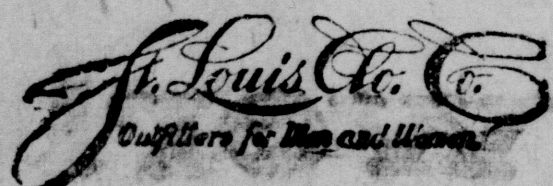 St. Louis Clo. Co.
Outfitters for Men and Women